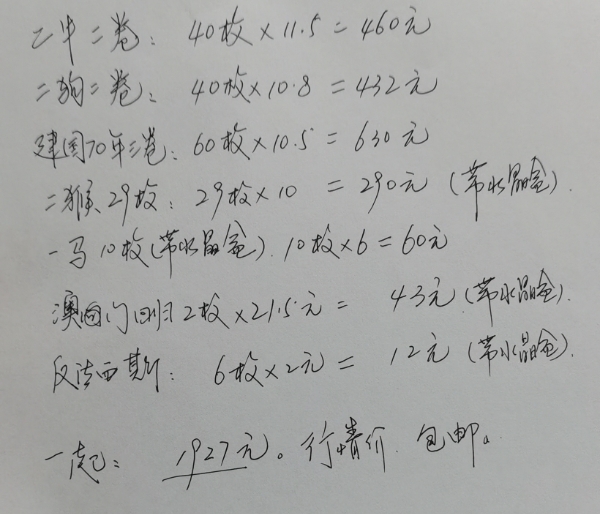 二牛二卷：40枚×11.5=460元
二狗二卷：40枚×10.8=432元
建国70年三卷：60枚×10.5=630元
二猴29枚：29枚×10=290元（带水晶盒）.
一马10枚（带水晶盒）.10枚×6=60元
澳门回归2枚×21.5元=43元（带水晶盒）.
反法西斯：6枚×2元=12元（带水晶盒）.
一起：1927元。行情价.包邮。